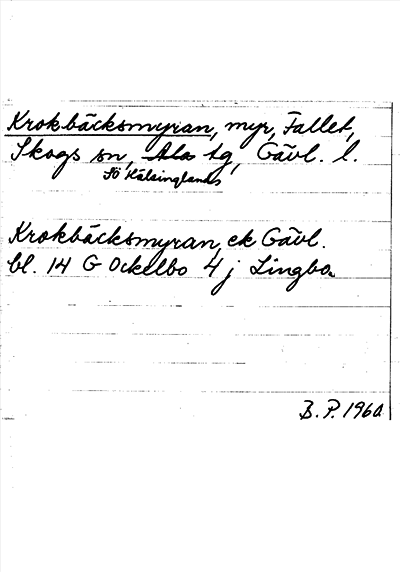 Krokbäcksmyran, myr, Fallet,
Skogs sn, Ala tg, Gävl. l.
Sö Hälsinglands
Krokbäcksmyran, ek Gävl.
bl. 14 G Ockelbo 4 j Lingbo
B.P. 1960